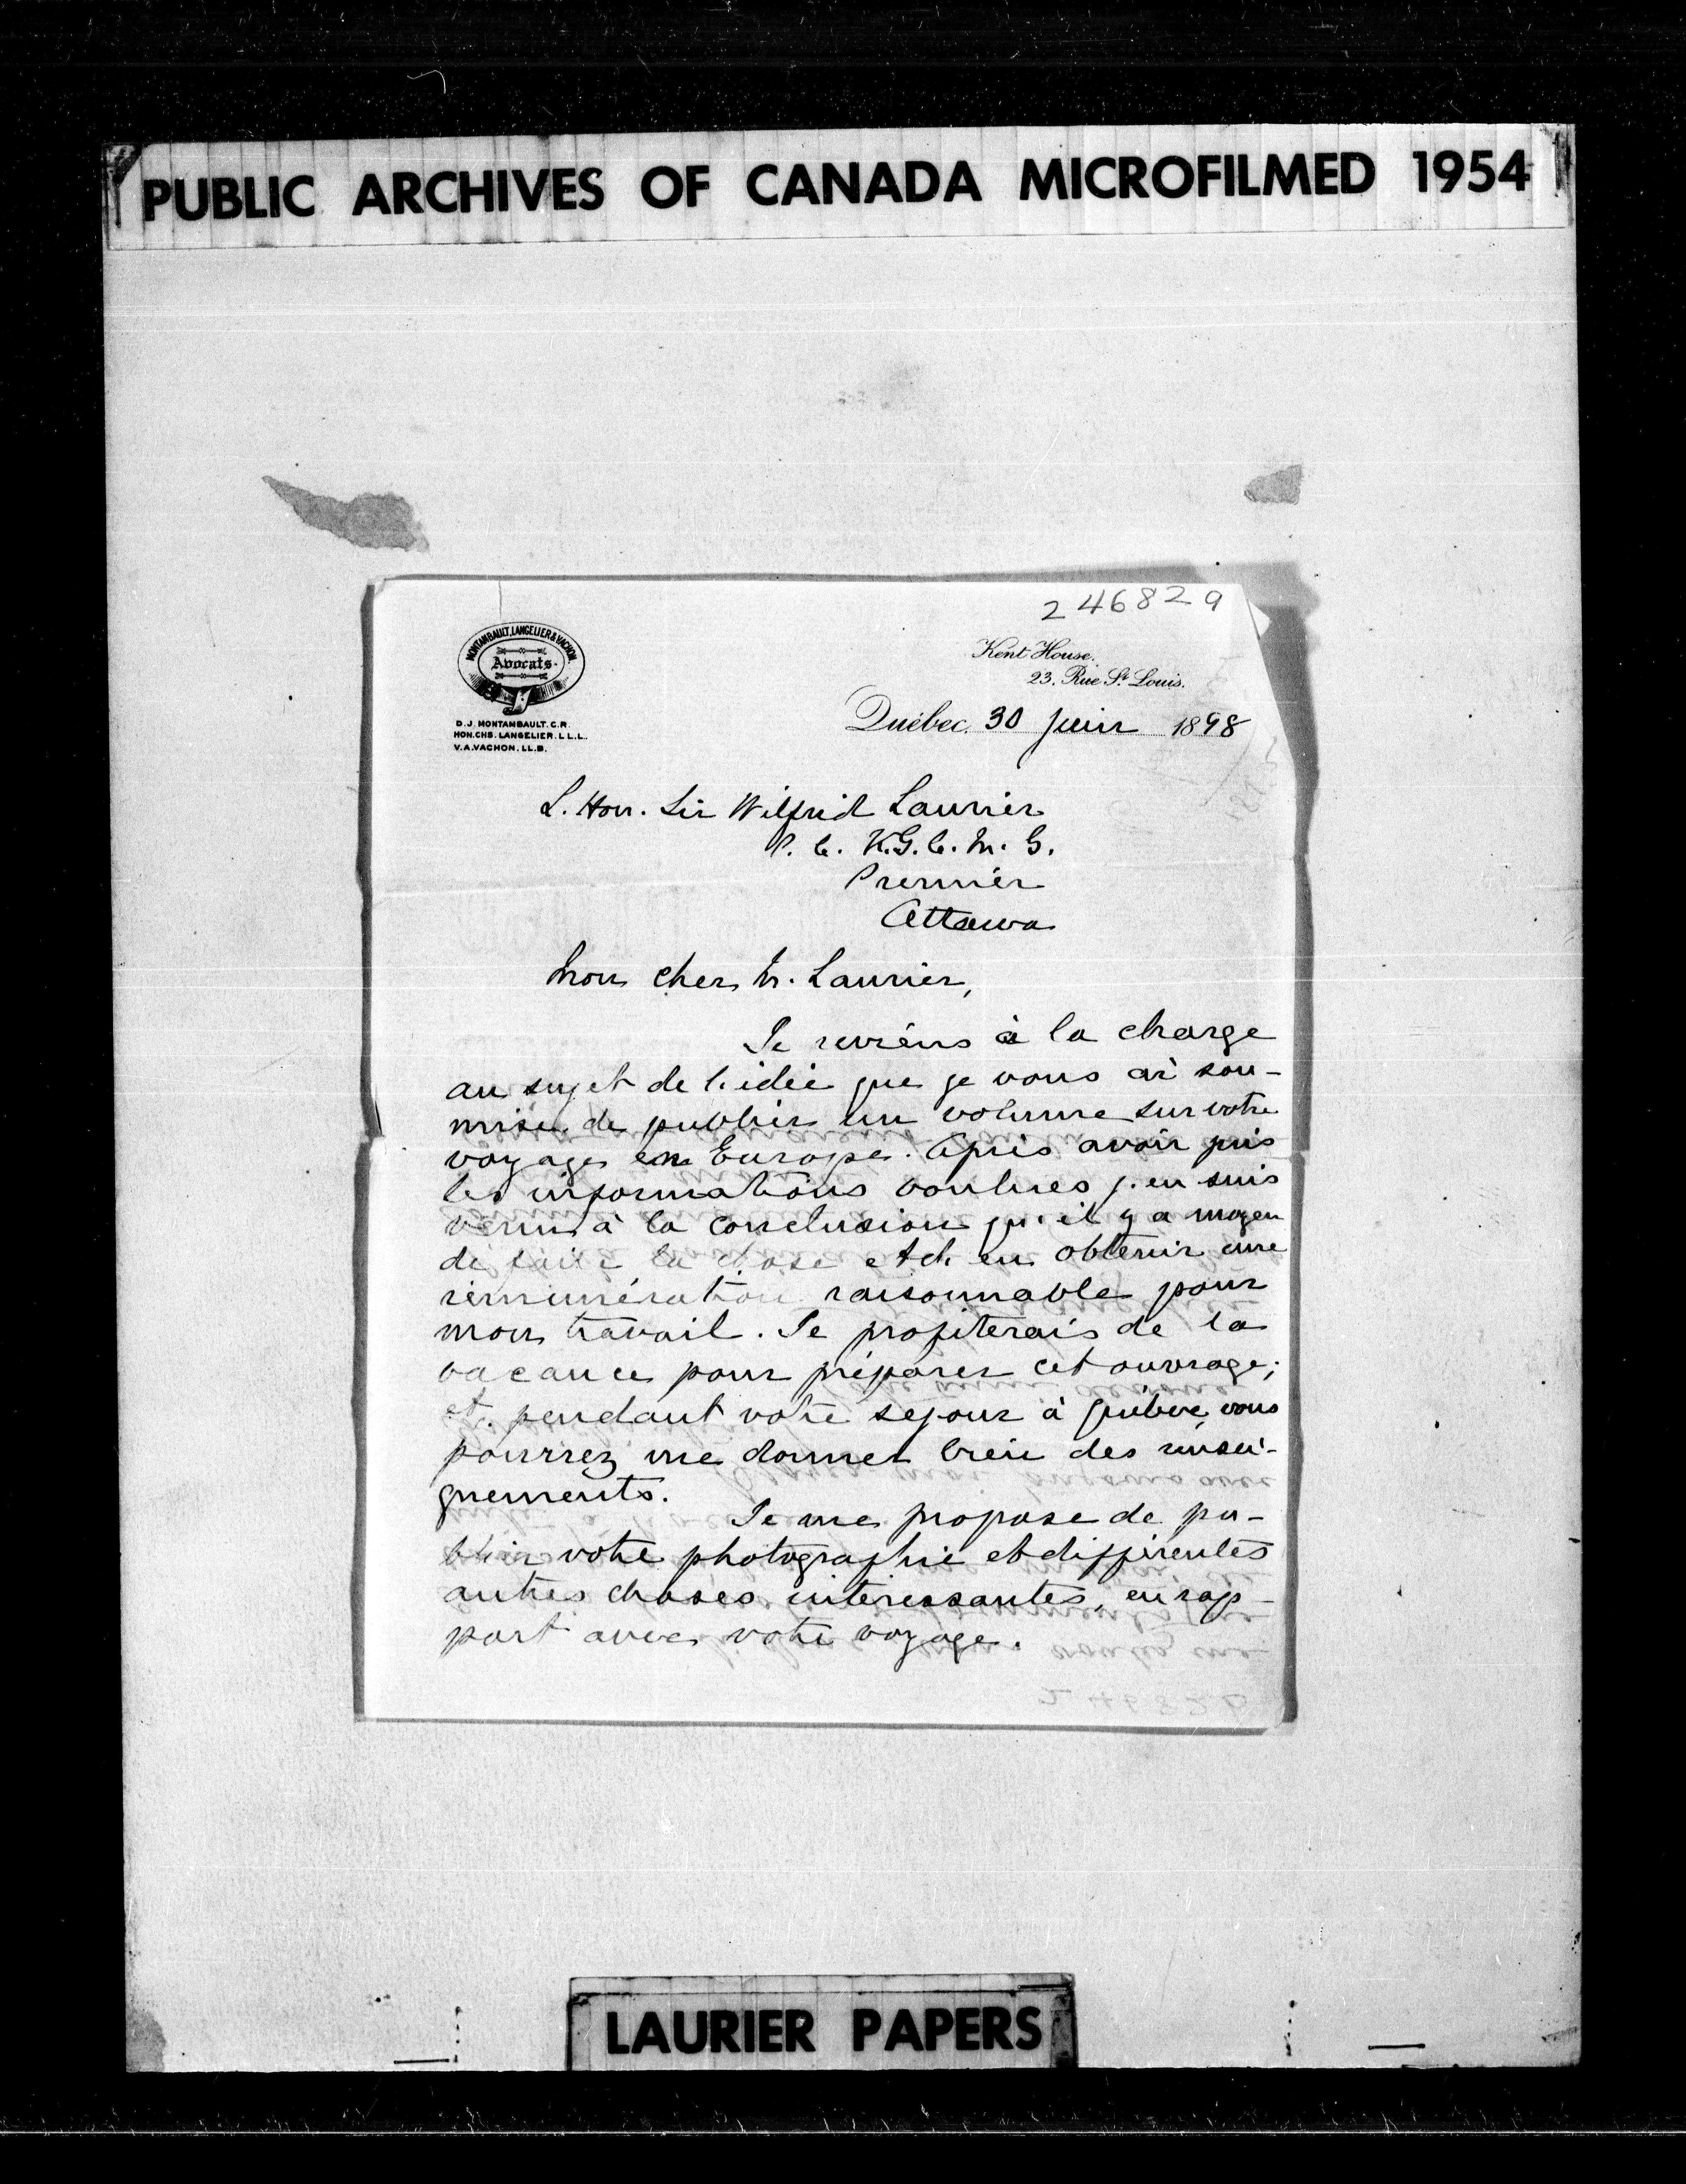 PUBLIC ARCHIVES OF CANADA MICROFILMED 1954
246829
MONTAMBAULT, LANGELIER & VACHON.
Avocats.
D.J. MONTAMBAULT. C.R.
HON. CHS. LANGELIER. L.L.L.
V.A. VACHON. LL.B.
Kent House.
23, Rue St. Louis.
Québec, 30 juin 1898
L. Hon. Sir Wilfrid Laurier
P. C. K.G.C.M.G.
Premier
Ottawa
Mon cher M. Laurier,
Je reviens à la charge
au sujet de l'idée que je vous ai sou-
mise de publier un volume sur votre
voyage en Europe. Après avoir pris
les informations voulues j'en suis
venu à la conclusion qu'il y a moyen
de faire la chose et d'en obtenir une
rémunération raisonnable pour
mon travail. Je profiterais de la
vacance pour préparer cet ouvrage;
et pendant votre séjour à Québec, vous
pourrez me donner bien des rensei-
gnements.
Je me propose de pu-
blier votre photographie et différentes
autres choses intéressantes, en rap-
port avec votre voyage.
LAURIER PAPERS